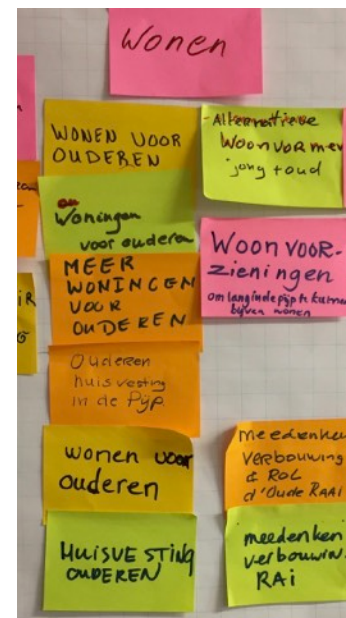 Wonen
WONEN VOOR
OUDEREN
Woningen
voor ouderen
MEER
WONINGEN
VOOR
OUDEREN
Ouderen
huisvesting
in de Pijp
wonen voor
ouderen
HUISVESTING
OUDEREN
- Alternatieve
Woonvormen
jong + oud
WOON VOOR-
zieningen
om lang in de pijp te kunnen
blijven wonen
meedenken
verbouwing
& ROL
d'Oude RAAI
meedenken
verbouwin
RAi